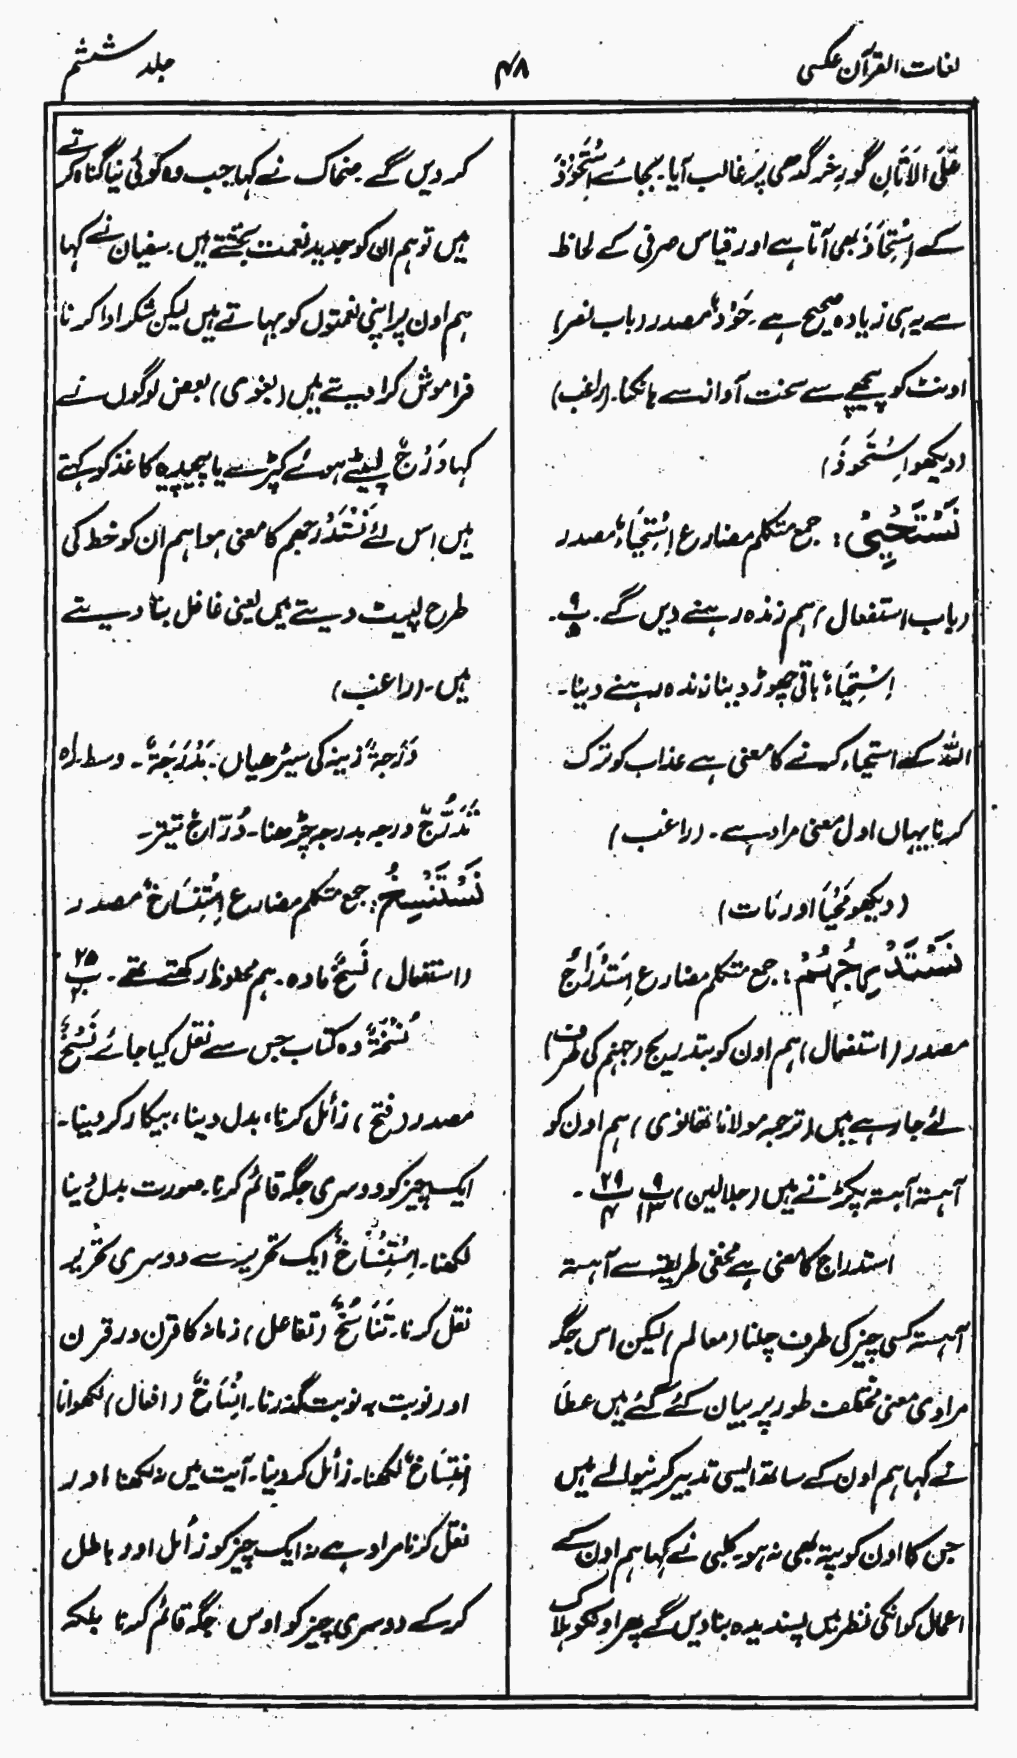 لغات القرآن عکسی
۴۸
جلد ششم
عَلَی الاَتَانِ گورخر گدھی پر غالب آیا۔ بجائے اِسْتَحْوَذَ
کے اِسْتَحَاذَ بھی آتا ہے اور قیاس صرفی کے لحاظ
سے یہی زیادہ صحیح ہے۔ حَوْذٌ مصدر (باب نصر)
اونٹ کو پیچھے سے سخت آواز سے ہانکنا۔ (راغب)
(دیکھو اِسْتَحْوَذَ)
نَسْتَحْیِیْ: جمع متکلم مضارع اِسْتِحْیَاءٌ مصدر
(باب استفعال) ہم زندہ رہنے دیں گے۔ پ۹ ۵۔
اِسْتِحْیَاءٌ باقی چھوڑ دینا زندہ رہنے دینا۔
اللہ کے استحیاء کرنے کا معنی ہے عذاب کو ترک
کرنا یہاں اول معنی مراد ہے۔ (راغب)
(دیکھو مَحْیَا اور مَات)
نَسْتَدْرِجُہُمْ: جمع متکلم مضارع اِسْتِدْرَاجٌ
مصدر (استفعال) ہم اون کو بتدریج (جہنم کی طرف)
لئے جا رہے ہیں (ترجمہ مولانا تھانوی) ہم اون کو
آہستہ آہستہ پکڑتے ہیں (جلالین) پ۹ ۱۳ پ۲۹ ۴۔
استدراج کا معنی ہے مخفی طریقہ سے آہستہ
آہستہ کسی چیز کی طرف چلنا (معالم) لیکن اس جگہ
مرادی معنی مختلف طور پر بیان کئے گئے ہیں عطا
نے کہا ہم اون کے ساتھ ایسی تدبیر کرنیوالے ہیں
جن کا اون کو پتہ بھی نہ ہو۔ کلبی نے کہا ہم اون کے
اعمال کو انکی نظر میں پسندیدہ بنا دیں گے پھر اونکو ہلاک
کر دیں گے۔ ضحاک نے کہا جب وہ کوئی نیا گناہ کرتے
ہیں تو ہم ان کو جدید نعمت بخشتے ہیں۔ سفیان نے کہا
ہم اون پر اپنی نعمتوں کو بہاتے ہیں لیکن شکر ادا کرنا
فراموش کرا دیتے ہیں (بغوی) بعض لوگوں نے
کہا دَرْجٌ لپیٹے ہوئے کپڑے یا پیچیدہ کاغذ کو کہتے
ہیں اس لئے نَسْتَدْرِجُہُم کا معنی ہوا ہم ان کو خط کی
طرح لپیٹ دیتے ہیں یعنی غافل بنا دیتے
ہیں۔ (راغب)
دَرَجَۃٌ زینہ کی سیڑھیاں۔ مَدْرَجَۃٌ۔ وسط راہ
تَدَرُّجٌ درجہ بدرجہ چڑھنا۔ دُرَّاجٌ تیتر۔
نَسْتَنْسِخُ: جمع متکلم مضارع اِسْتِنْسَاخٌ مصدر
(استفعال) نَسْخٌ مادہ۔ ہم محفوظ رکھتے تھے۔ پ۲۵ ۲۰
نُسْخَۃٌ وہ کتاب جس سے نقل کیا جائے نَسْخٌ
مصدر (فتح) زائل کرنا، بدل دینا، بیکار کر دینا۔
ایک چیز کو دوسری جگہ قائم کرنا۔ صورت بدل دینا
لکھنا۔ اِسْتِنْسَاخٌ ایک تحریر سے دوسری تحریر
نقل کرنا۔ تَنَاسُخٌ (تفاعل) زمانہ کا قرن در قرن
اور نوبت بہ نوبت گذرنا۔ اِنْسَاخٌ (افعال) لکھوانا
اِنْتِسَاخٌ لکھنا۔ زائل کر دینا۔ آیت میں نہ لکھنا اور
نقل کرنا مراد ہے نہ ایک چیز کو زائل اور باطل
کر کے دوسری چیز کو اوس جگہ قائم کرنا بلکہ